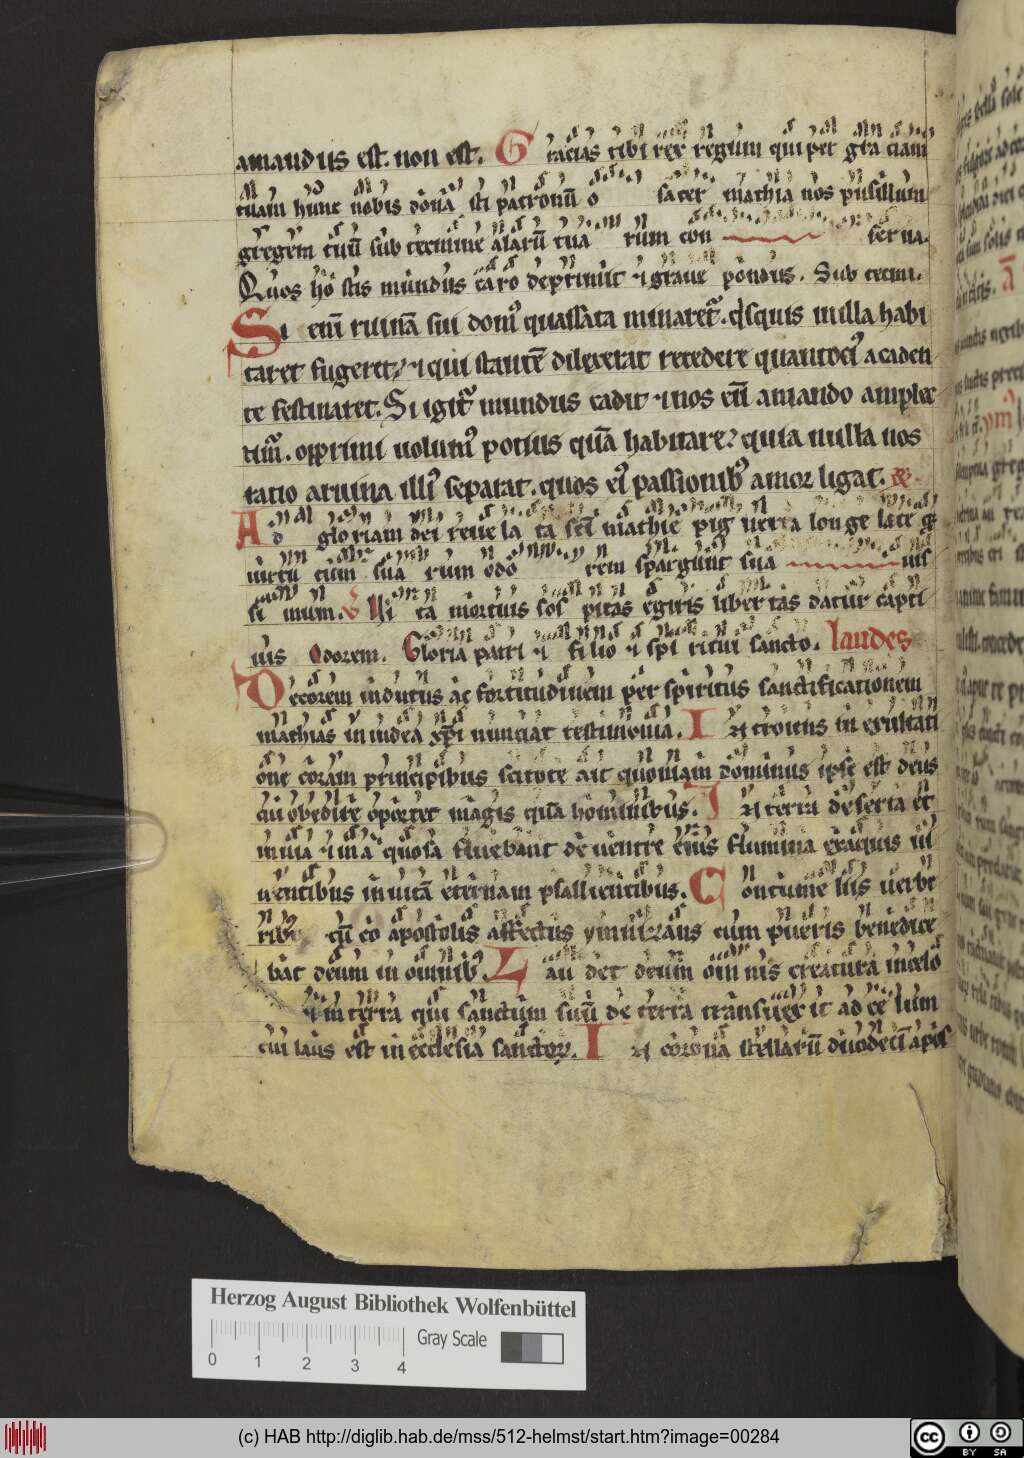 amandus est. non est. Gracias tibi rex regum qui per gr̄a ciam
tuam hunc nobis dona sc̄i patronū o sacer mathia nos pusillum
gregem tuū sub tecmine alarū tua rum con serua.
Quos ho stis mundus caro deprimit ⁊ graue pondus. Sub tecmi.
Si enī ruinā sui domꝰ quassata minaretᷣ. qisquis in illa habi
taret fugeret, ⁊ qui stantē dilexerat recedere quantociꝰ a caden
te festinaret. Si igitᷣ mundus cadit ⁊ nos eū amando amplec
timᷣ. opprimi uolumꝰ potius quā habitare, quia nulla nos
ratio a ruina illiꝰ separat. quos eiꝰ passionibꝰ amor ligat.
Ad gloriam dei reue la ta sc̄i mathie pig nerra longe late q̄
uirtu tum sua rum odo rem spargunt sua uis
si mum. V Hi ta mortuis sos pitas egris liber tas datur capti
uis Odorem. Gloria patri ⁊ fi lio ⁊ spi ritui sancto. laudes
Decorem indutus ac fortitudinem per spiritus sanctificationem
mathias in iudea xp̄i nunciat testimonia. In troiens in exultati
one coram principibus scitote ait quoniam dominus ipse est deus
cui obedire oportet magis quā hominibus. In terra deserta et
inuia ⁊ in a quosa fluebant de uentre eius flumina ex aquis ui
uentibus in uitā eternam psallientibus. Contume liis uerbe
ribꝰ cū co apostolis affectus ymnizans cum pueris benedice
bat deum in omnibꝰ. Lau det deum om nis creatura in celo
⁊ in terra qui sanctum suū de terra transuex it ad ce lum
cui laus est in ecclesia sanctoꝝ. In corona stellarū duodecī apos
Herzog August Bibliothek Wolfenbüttel
Gray Scale
0 1 2 3 4
(c) HAB http://diglib.hab.de/mss/512-helmst/start.htm?image=00284
cc BY SA